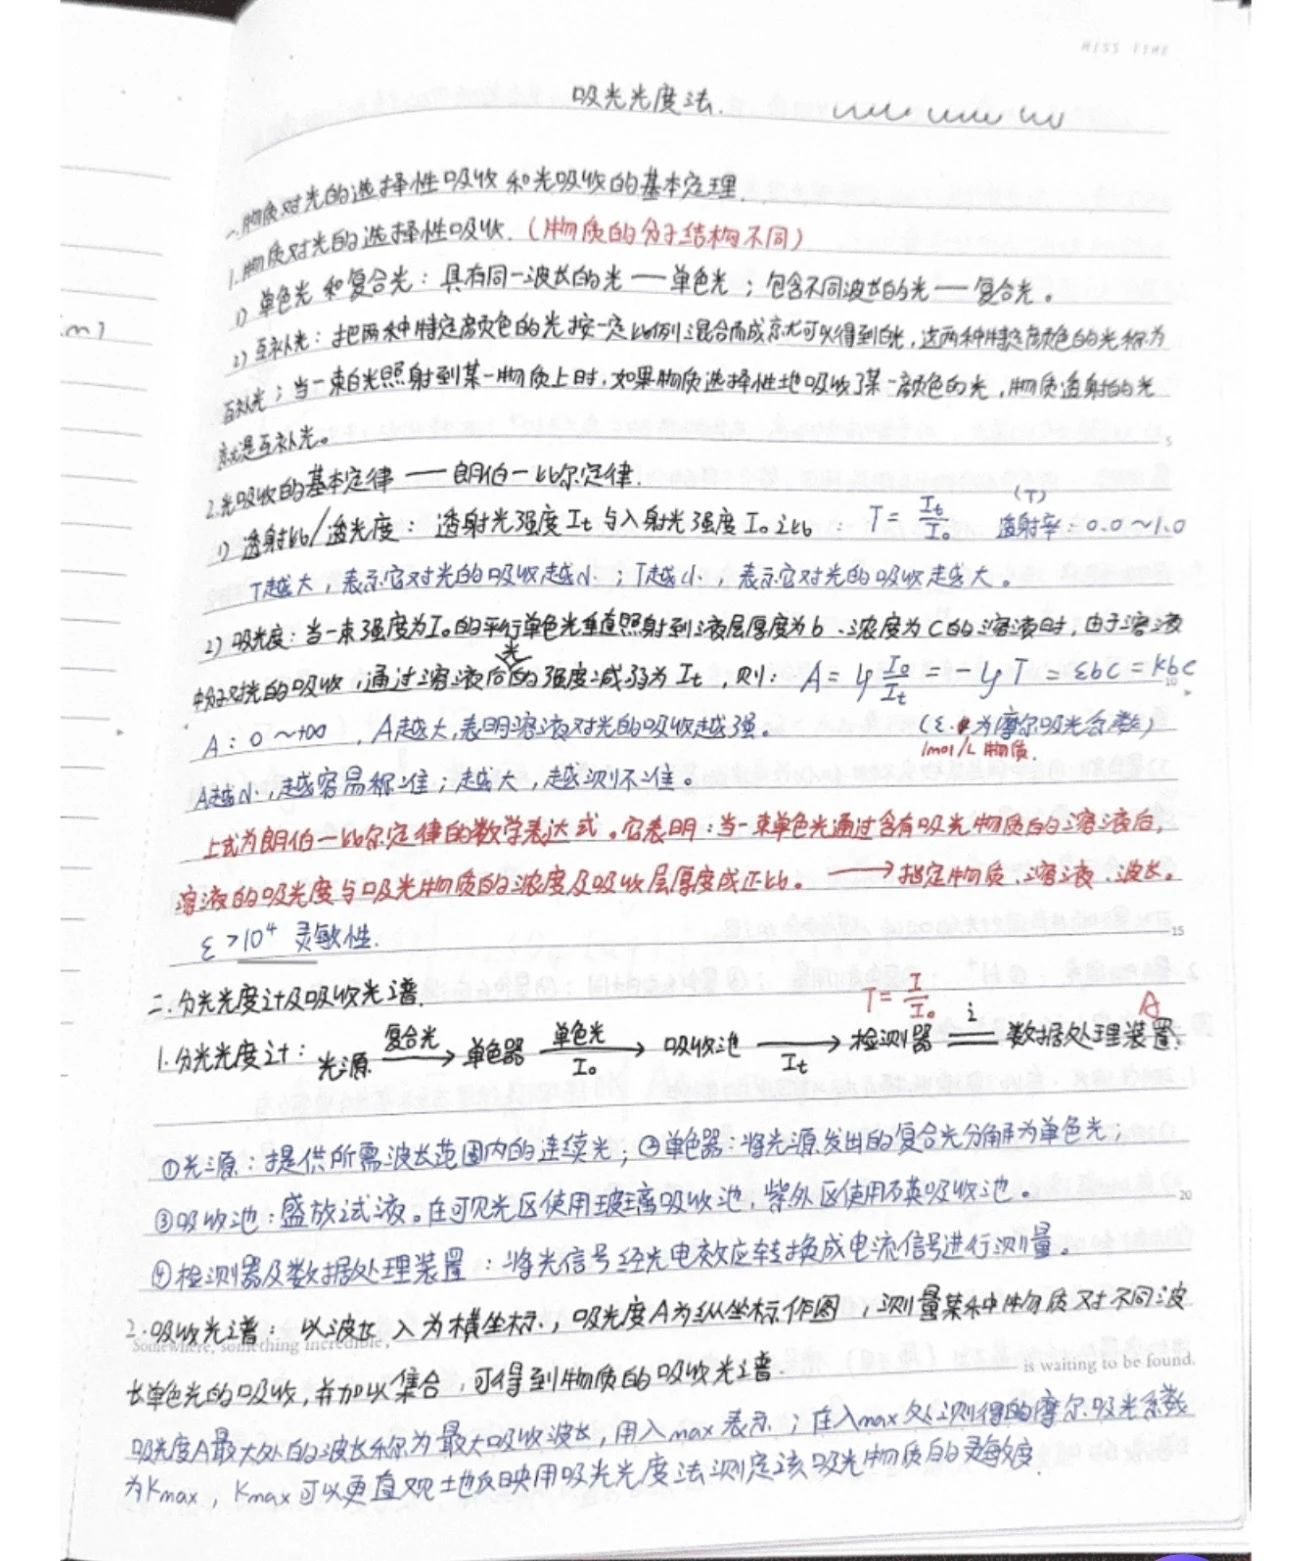 MISS TIME
吸光光度法.
一、物质对光的选择性吸收和光吸收的基本定理.
1.物质对光的选择性吸收.（物质的分子结构不同）
1) 单色光和复合光：具有同一波长的光——单色光；包含不同波长的光——复合光。
m)
2) 互补光：把两种特定颜色的光按一定比例混合而成就可以得到白光，这两种特定颜色的光称为
互补光；当一束白光照射到某一物质上时，如果物质选择性地吸收了某一颜色的光，物质透射的光
就是互补光。
5
2.光吸收的基本定律——朗伯一比尔定律.
1) 透射比/透光度：透射光强度It与入射光强度I₀之比：T=It/I₀ (T)透射率：0.0~1.0
T越大，表示它对光的吸收越小；T越小，表示它对光的吸收越大。
2) 吸光度：当一束强度为I₀的平行单色光垂直照射到液层厚度为b、浓度为C的溶液时，由于溶液
中分子对光的吸收，通过溶液后光的强度减弱为It，则：A=lg I₀/It=-lgT=εbc=kbc
10
A：0~+∞，A越大，表明溶液对光的吸收越强。（ε.为摩尔吸光系数）
1mol/L 物质.
A越小，越容易称准；越大，越测不准。
上式为朗伯一比尔定律的数学表达式。它表明：当一束单色光通过含有吸光物质的溶液后，
溶液的吸光度与吸光物质的浓度及吸收层厚度成正比。→指定物质、溶液、波长。
ε>10⁴ 灵敏性.
15
二.分光光度计及吸收光谱.
T=I/I₀ A
1.分光光度计：光源 复合光→ 单色器 单色光/I₀→ 吸收池 →It 检测器 i 数据处理装置.
①光源：提供所需波长范围内的连续光；②单色器：将光源发出的复合光分解为单色光；
③吸收池：盛放试液。在可见光区使用玻璃吸收池，紫外区使用石英吸收池。
20
④检测器及数据处理装置：将光信号经光电效应转换成电流信号进行测量。
2.吸收光谱：以波长入为横坐标.，吸光度A为纵坐标作图，测量某种物质对不同波
Somewhere, something incredible,
长单色光的吸收，并加以集合，可得到物质的吸收光谱.
is waiting to be found.
吸光度A最大处的波长称为最大吸收波长，用入max表示；在入max处测得的摩尔吸光系数
为kmax，kmax可以更直观地反映用吸光光度法测定该吸光物质的灵敏度.